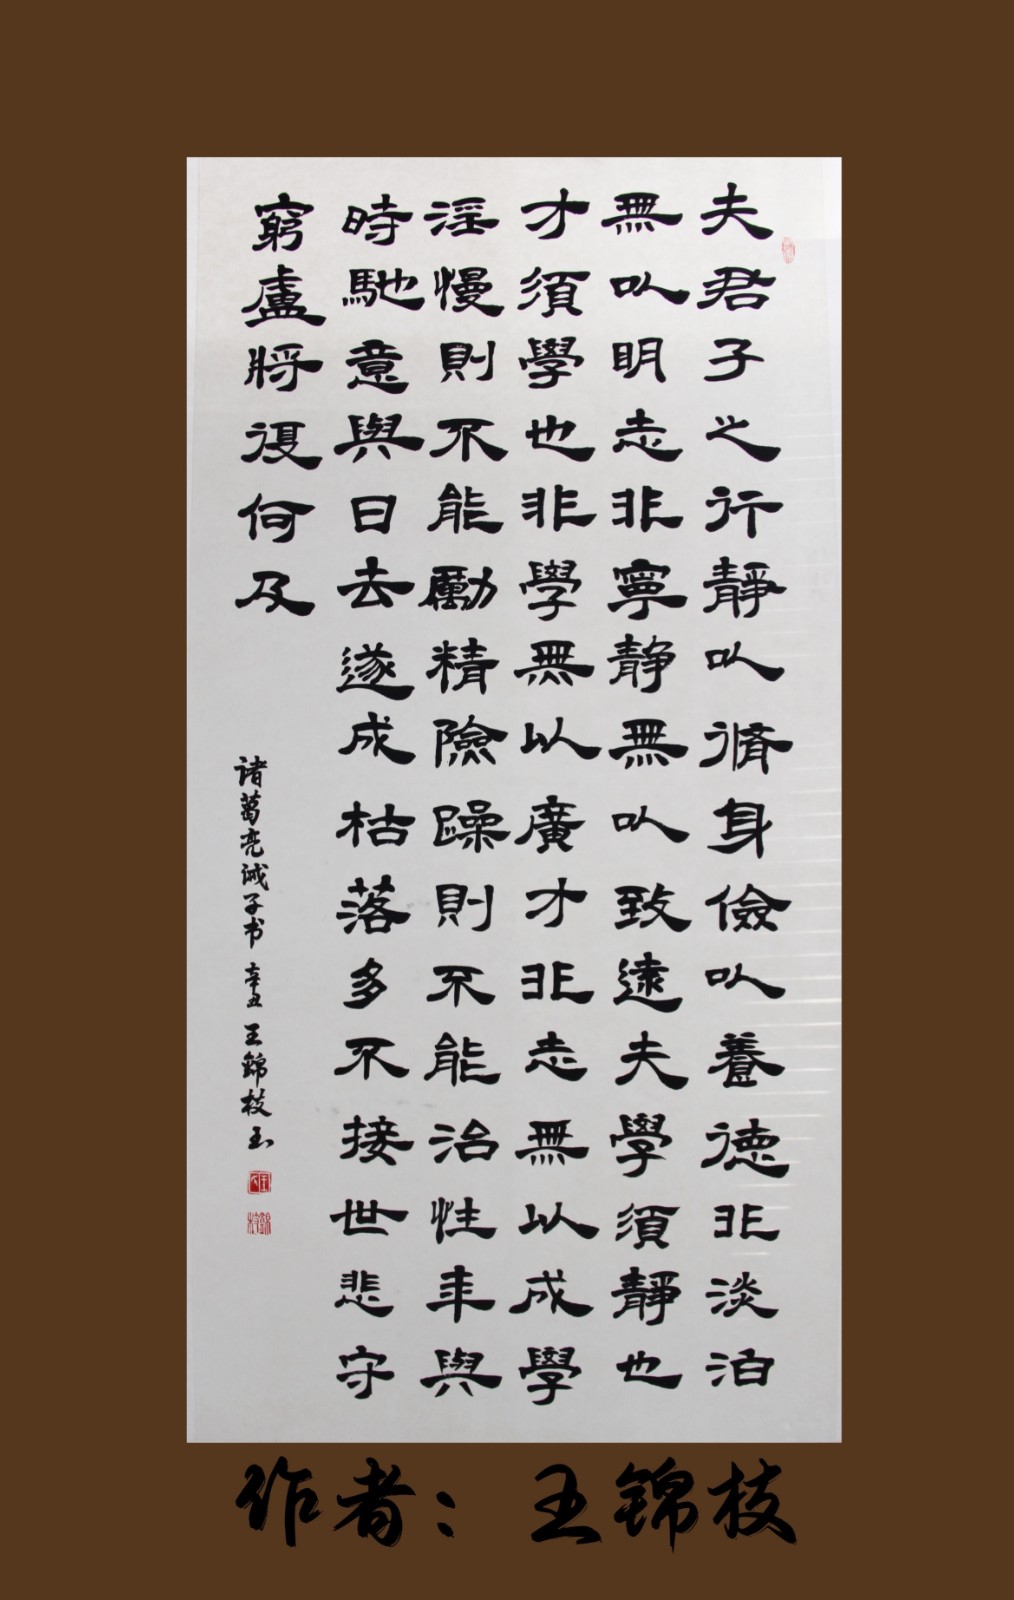 夫君子之行靜以脩身儉以養德非淡泊
無以明志非寧静無以致遠夫學須靜也
才須學也非學無以廣才非志無以成學
淫慢則不能勵精險躁則不能治性年與
時馳意與日去遂成枯落多不接世悲守
窮盧將復何及
诸葛亮诫子书 辛丑 王錦枝
作者：王锦枝